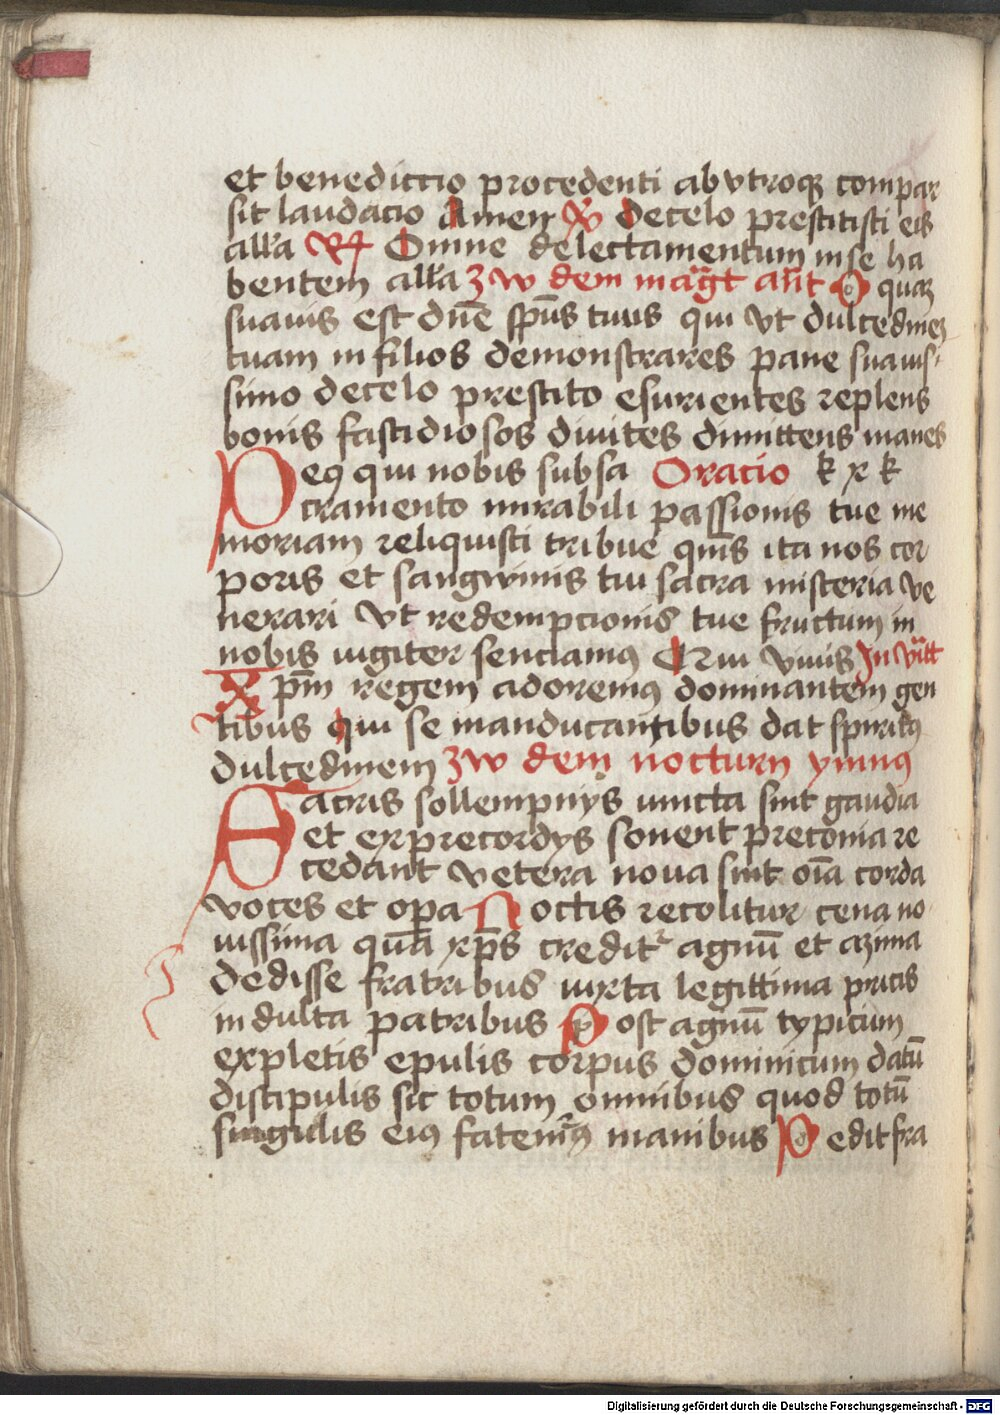 et benediccio procedenti ab vtroqꝫ compar
sit laudacio Amen ꝟ De celo prestitisti eis
alla R Omne delectamentum in se ha
bentem alla zw dem magt ant O quaꝫ
suauis est dn̄e sp̄us tuus qui vt dulcedineꝫ
tuam in filios demonstrares pane suauis
simo de celo prestito esurientes replens
bonis fastidiosos diuites dimittens inanes
Deꝰ qui nobis sub sa Oracio k x k
cramento mirabili passionis tue me
moriam reliquisti tribue qm̄s ita nos cor
poris et sangwinis tui sacra misteria ve
nerari vt redempcionis tue fructum in
nobis iugiter senciamꝰ Qui viuis Inuitt
Xp̄m regem adoremꝰ dominantem gen
tibus qui se manducantibus dat spiritꝰ
dulcedinem zw dem nocturn ymnus
Sacris sollempnys iuncta sint gaudia
et ex precordys sonent preconia re
cedant vetera noua sint oīa corda
voces et opa Noctis recolitur cena no
uissima qua xp̄s credit᷑ agnū et azima
dedisse fratribus iuxta legittima priscis
indulta patribus Post agnū typicum
expletis epulis corpus dominicum datū
discipulis sic totum omnibus quod totū
singulis eiꝰ fatemꝰ manibus Dedit fra
Digitalisierung gefördert durch die Deutsche Forschungsgemeinschaft - DFG